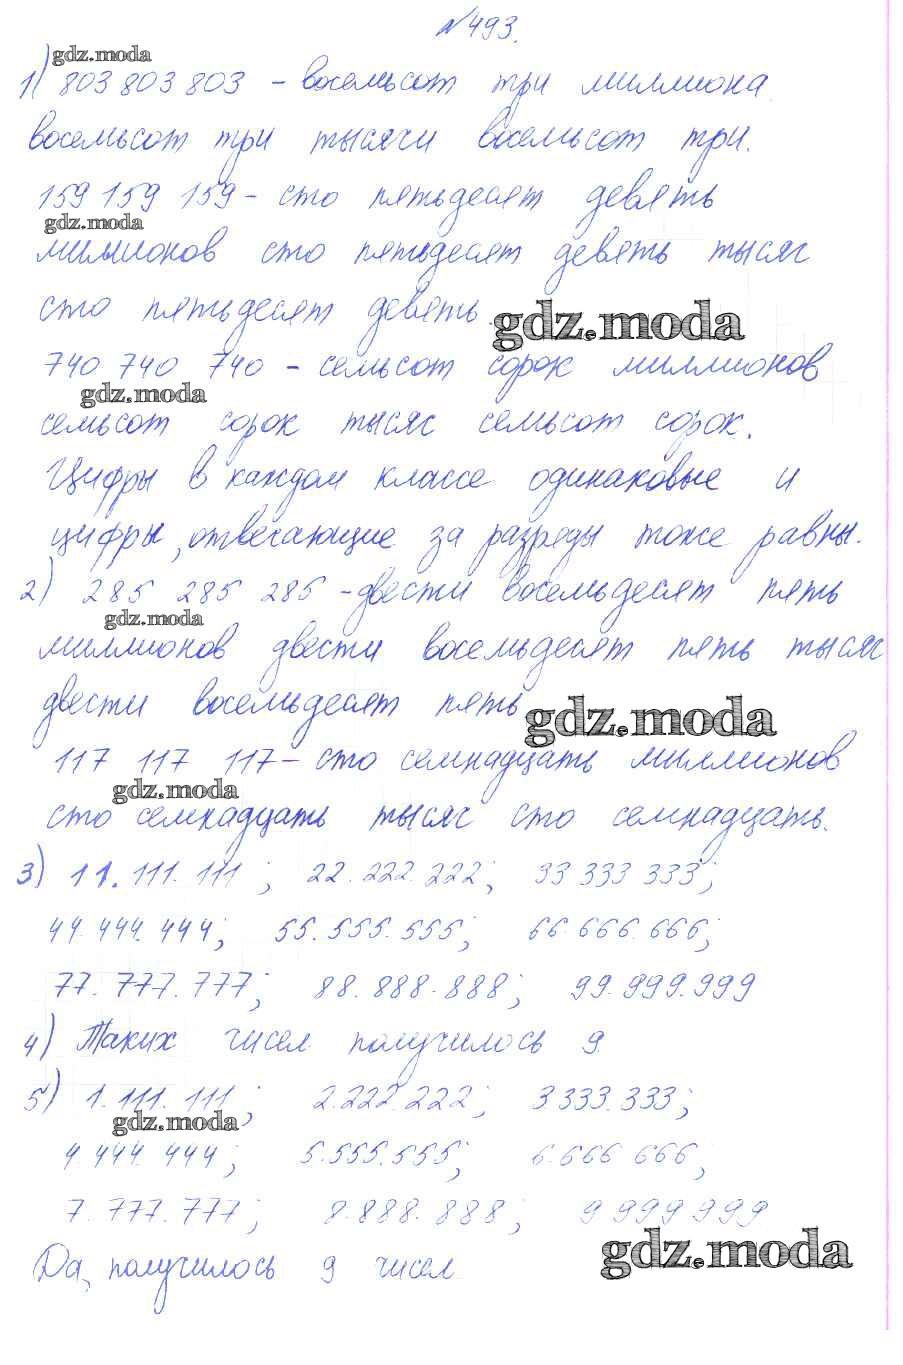 №493.
gdz.moda
1) 803 803 803 - восемьсот три миллиона
восемьсот три тысячи восемьсот три.
159 159 159 - сто пятьдесят девять
gdz.moda
миллионов сто пятьдесят девять тысяч
сто пятьдесят девять.
gdz.moda
740 740 740 - семьсот сорок миллионов
gdz.moda
семьсот сорок тысяч семьсот сорок.
Цифры в каждом классе одинаковые и
цифры, отвечающие за разряды тоже равны.
2) 285 285 285 - двести восемьдесят пять
gdz.moda
миллионов двести восемьдесят пять тысяч
двести восемьдесят пять
gdz.moda
117 117 117 - сто семнадцать миллионов
gdz.moda
сто семнадцать тысяч сто семнадцать.
3) 11.111.111; 22.222.222; 33 333 333;
44.444.444; 55.555.555; 66.666.666;
77.777.777; 88.888.888; 99.999.999
4) Таких чисел получилось 9
5) 1.111.111; 2.222.222; 3 333.333;
gdz.moda
4.444.444; 5.555.555; 6.666 666;
7.777.777; 8.888.888; 9 999 999
gdz.moda
Да, получилось 9 чисел